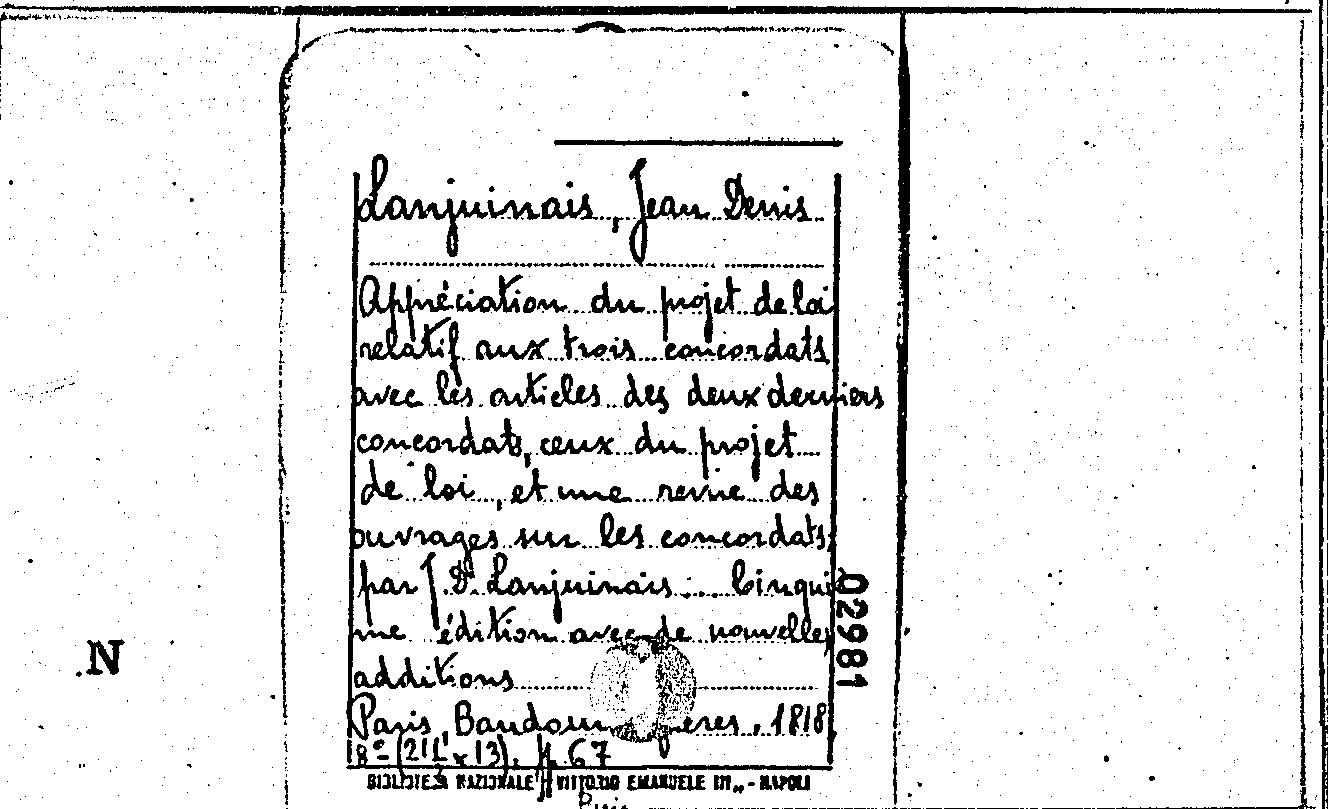 Lanjuinais, Jean Denis
Appréciation du projet de loi
relatif aux trois concordats
avec les articles des deux derniers
concordats, ceux du projet
de loi, et une revue des
ouvrages sur les concordats;
par J. D. Lanjuinais... Cinqui
me édition avec de nouvelles
additions
Paris, Baudouin, 1818
8° (21 x 13), p. 67
BIBLIOTECA NAZIONALE VITTORIO EMANUELE III - NAPOLI
02981
.N